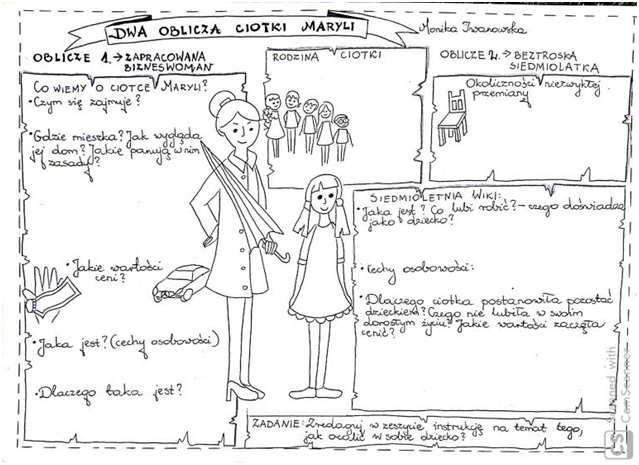 DWA OBLICZA CIOTKI MARYLI
Monika Iwanowska
OBLICZE 1. → ZAPRACOWANA
BIZNESWOMAN
CO WIEMY O CIOTCE MARYLI?
• Czym się zajmuje?
• Gdzie mieszka? Jak wygląda
jej dom? Jakie panują w nim
zasady?
• Jakie wartości
ceni?
• Jaka jest? (cechy osobowości)
• Dlaczego taka jest?
RODZINA CIOTKI
OBLICZE 2. → BEZTROSKA
SIEDMIOLATKA
Okoliczności niezwykłej
przemiany
SIEDMIOLETNIA WIKI:
• Jaka jest? Co lubi robić? - czego doświadcza
jako dziecko?
• Cechy osobowości:
• Dlaczego ciotka postanowiła pozostać
dzieckiem? Czego nie lubiła w swoim
dorosłym życiu? Jakie wartości zaczęła
cenić?
ZADANIE: Zredaguj w zeszycie instrukcję na temat tego,
jak ocalić w sobie dziecko?
CS Scanned with
CamScanner